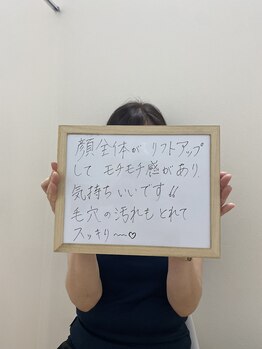 顔全体が リフトアップ
して モチモチ感があり
気持ちいいです!!
毛穴の汚れもとれて
スッキリ〜♡